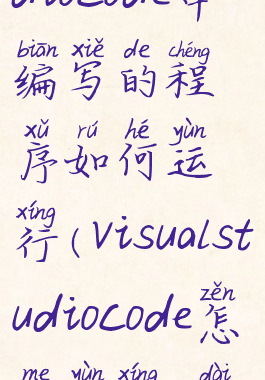 biān xiě de chéng
编写的程
xǔ rú hé yùn
序如何运
xíng
行(Visualst
zěn
udiocode怎
me yùn xíng dài